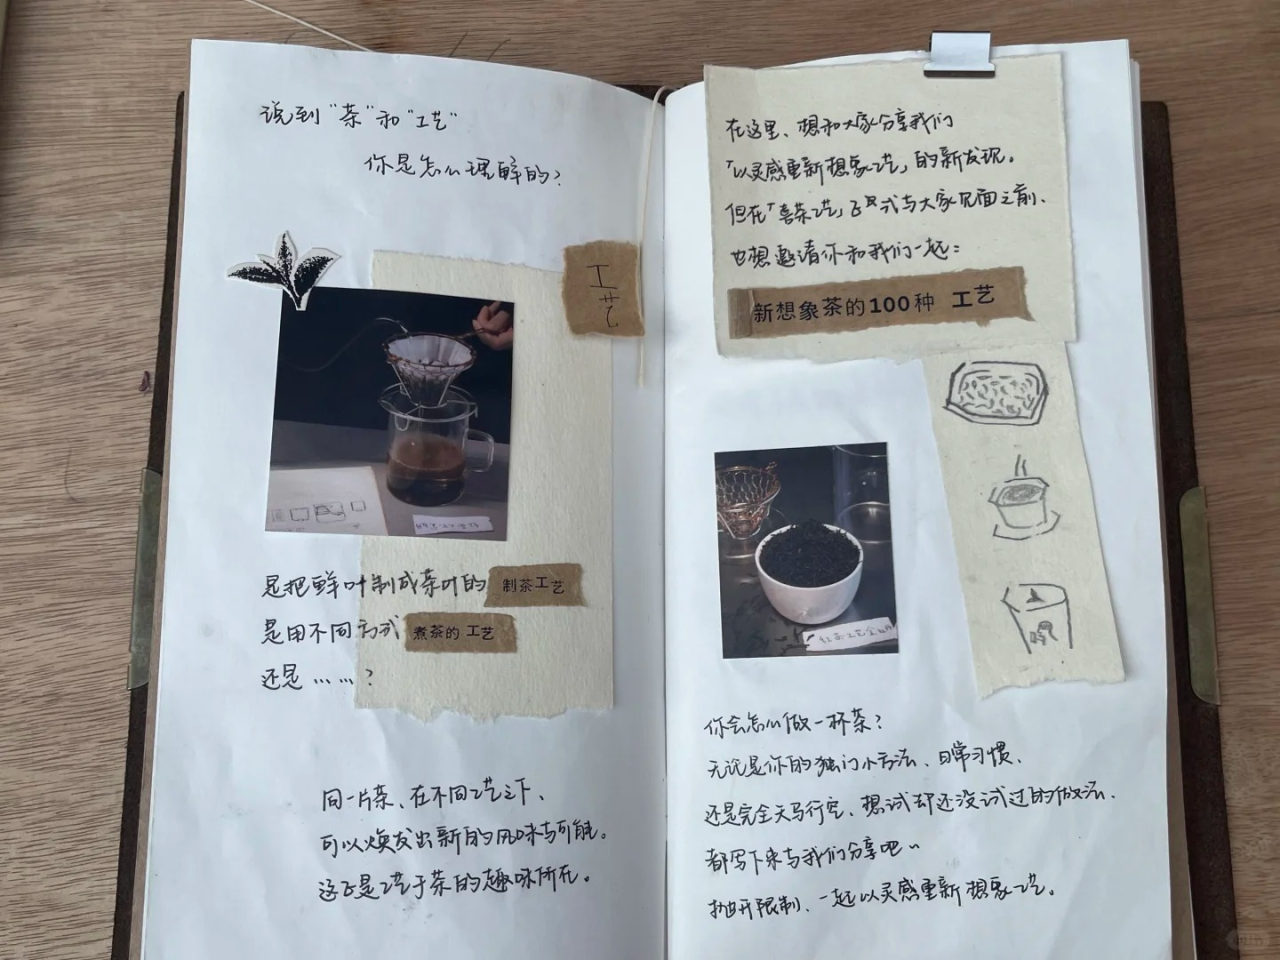 说到"茶"和"工艺"
你是怎么理解的?
工艺
是把鲜叶制成茶叶的 制茶工艺
是用不同方式 煮茶的 工艺
还是……?
同一片茶、在不同工艺之下、
可以焕发出新的风味与可能。
这正是工艺于茶的趣味所在。
在这里、想和大家分享我们
「以灵感重新想象工艺」的新发现。
但在「喜茶工艺」正式与大家见面之前、
也想邀请你和我们一起:
新想象茶的100种 工艺
你会怎么做一杯茶?
无论是你的独门小方法、日常习惯、
还是完全天马行空、想试却还没试过的做法、
都写下来与我们分享吧~
抛开限制、一起以灵感重新想象工艺。